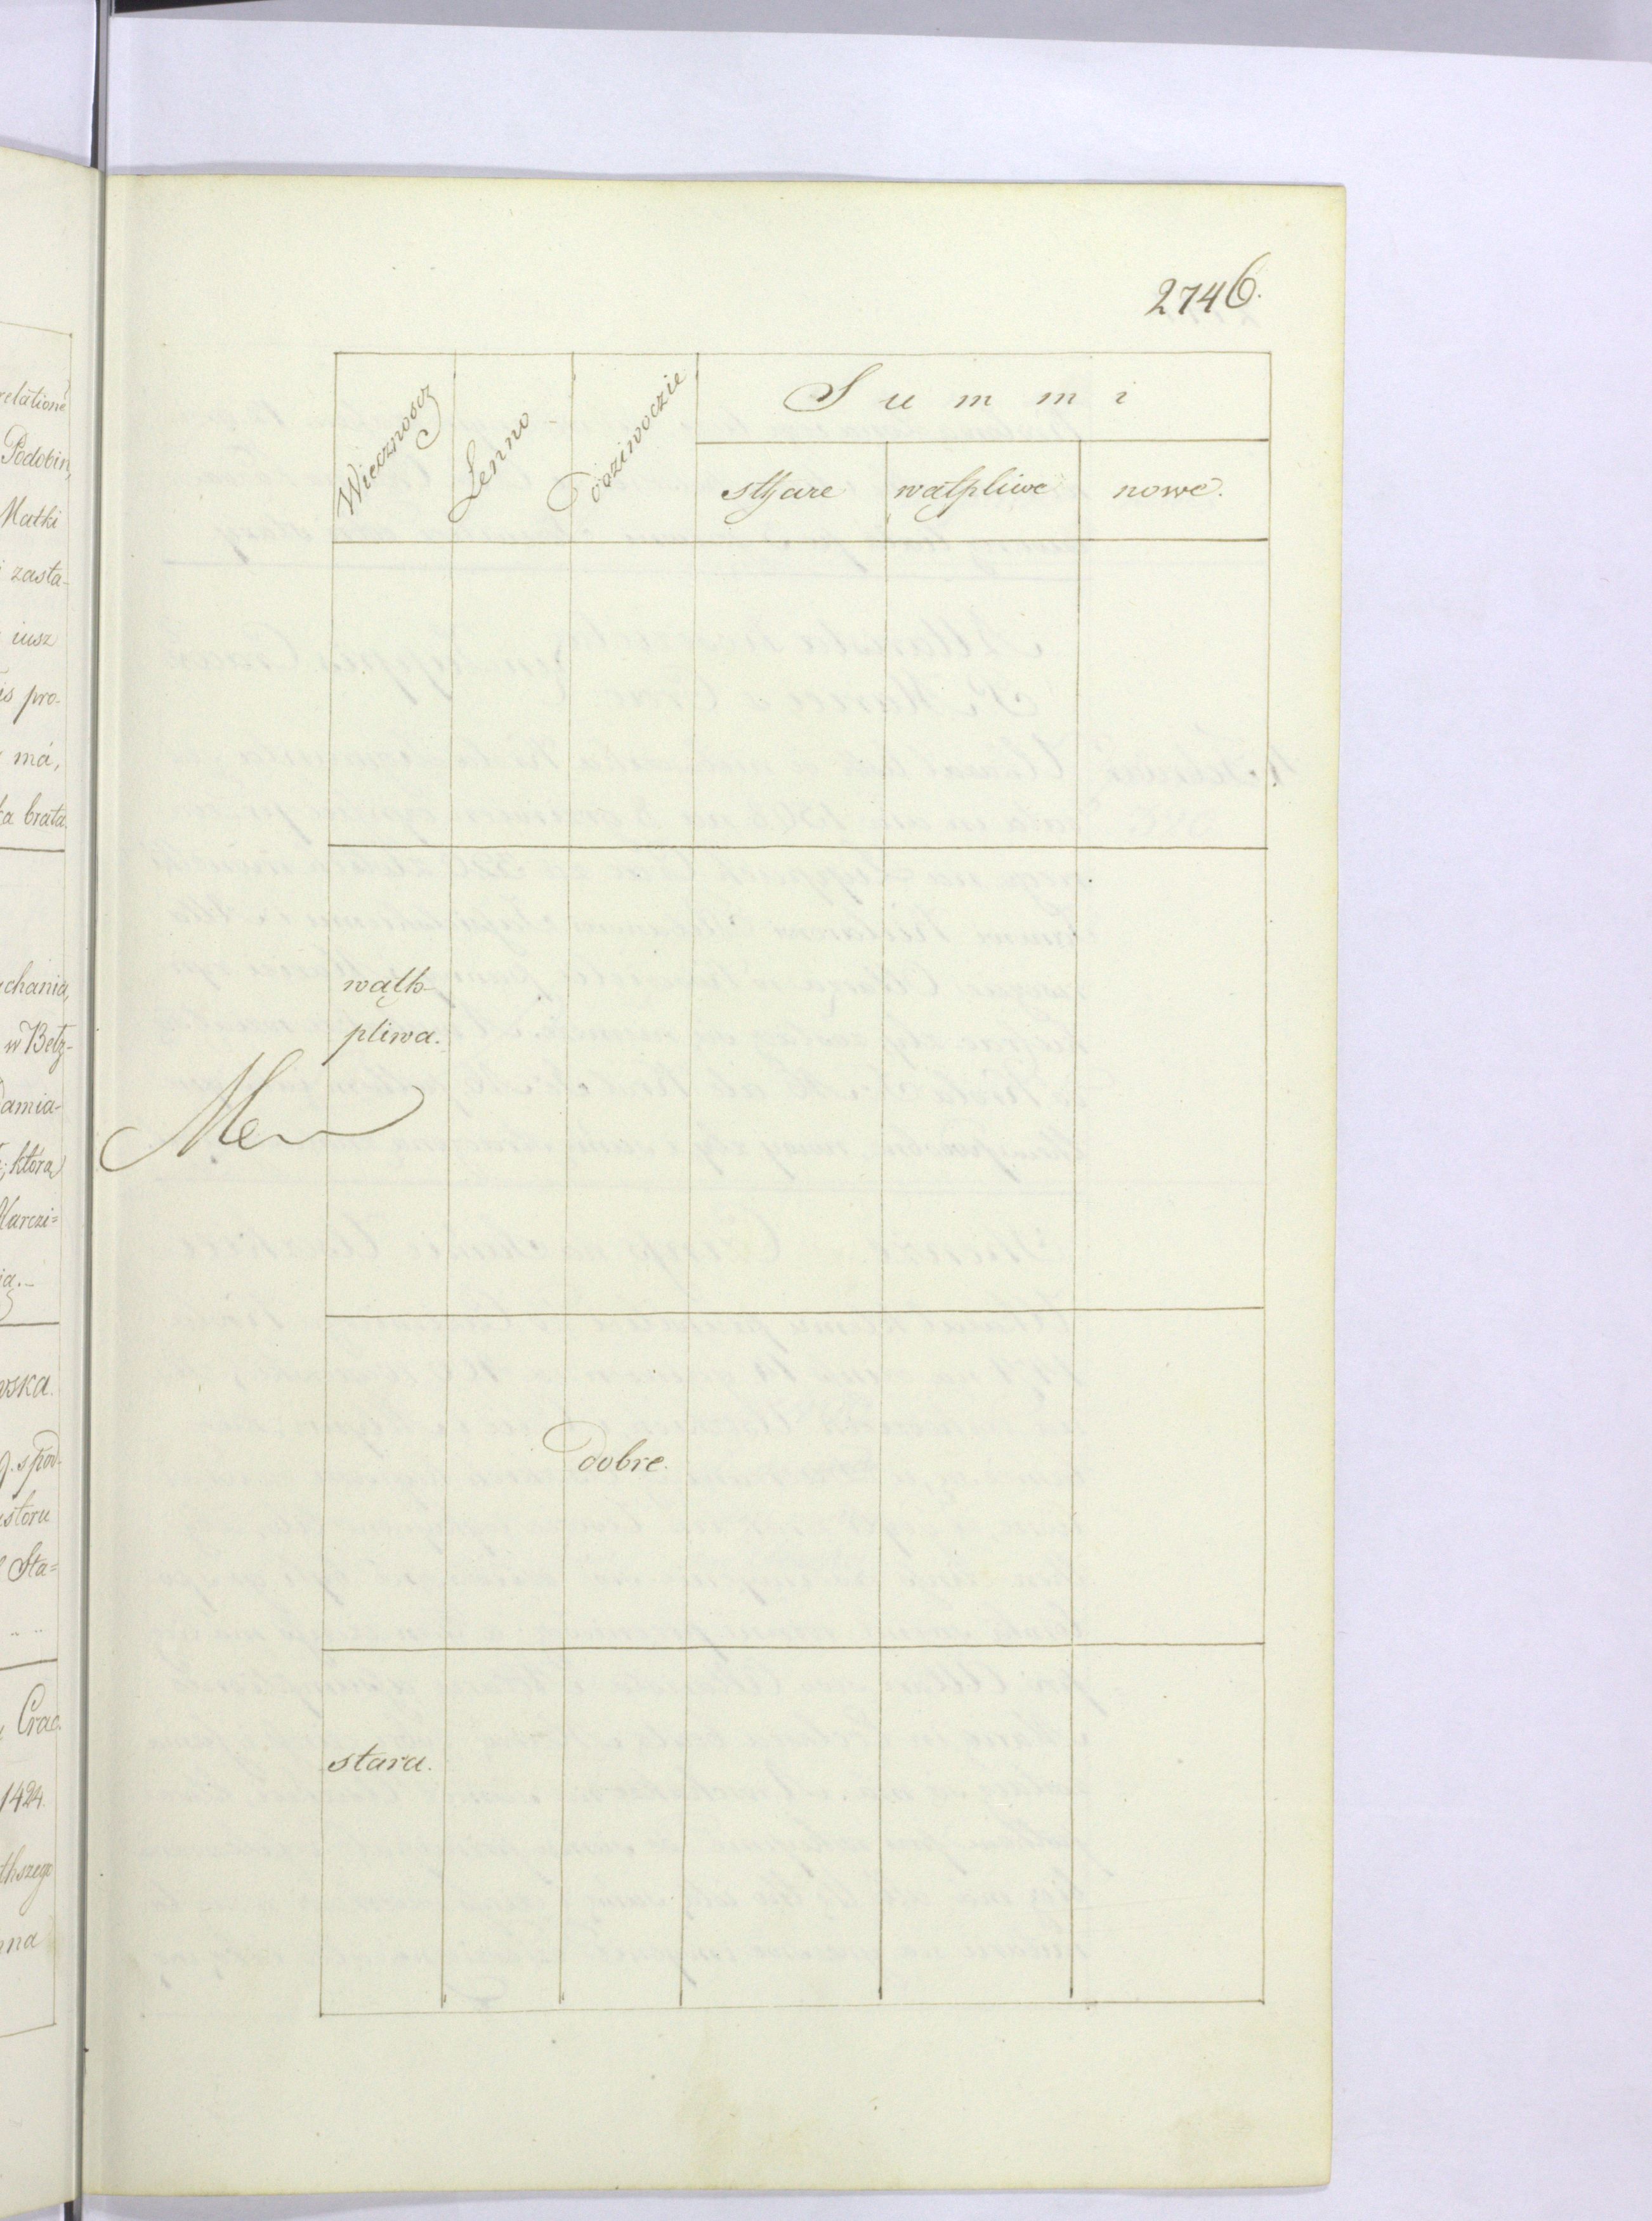 2746.
Wiecznoscz
Lenno
Doziwoczie
Summi
sthare
wathpliwe
nowe.
wath-
pliwa.
dobre.
stara.
relatione
Podobin,
Matki
zasta-
iusz
is pro-
má,
ka brata.
chania,
w Betz-
amia-
która
Marczi=
ia.-
wska.
storu
Sta=
Crac.
1424.
thszego
nna